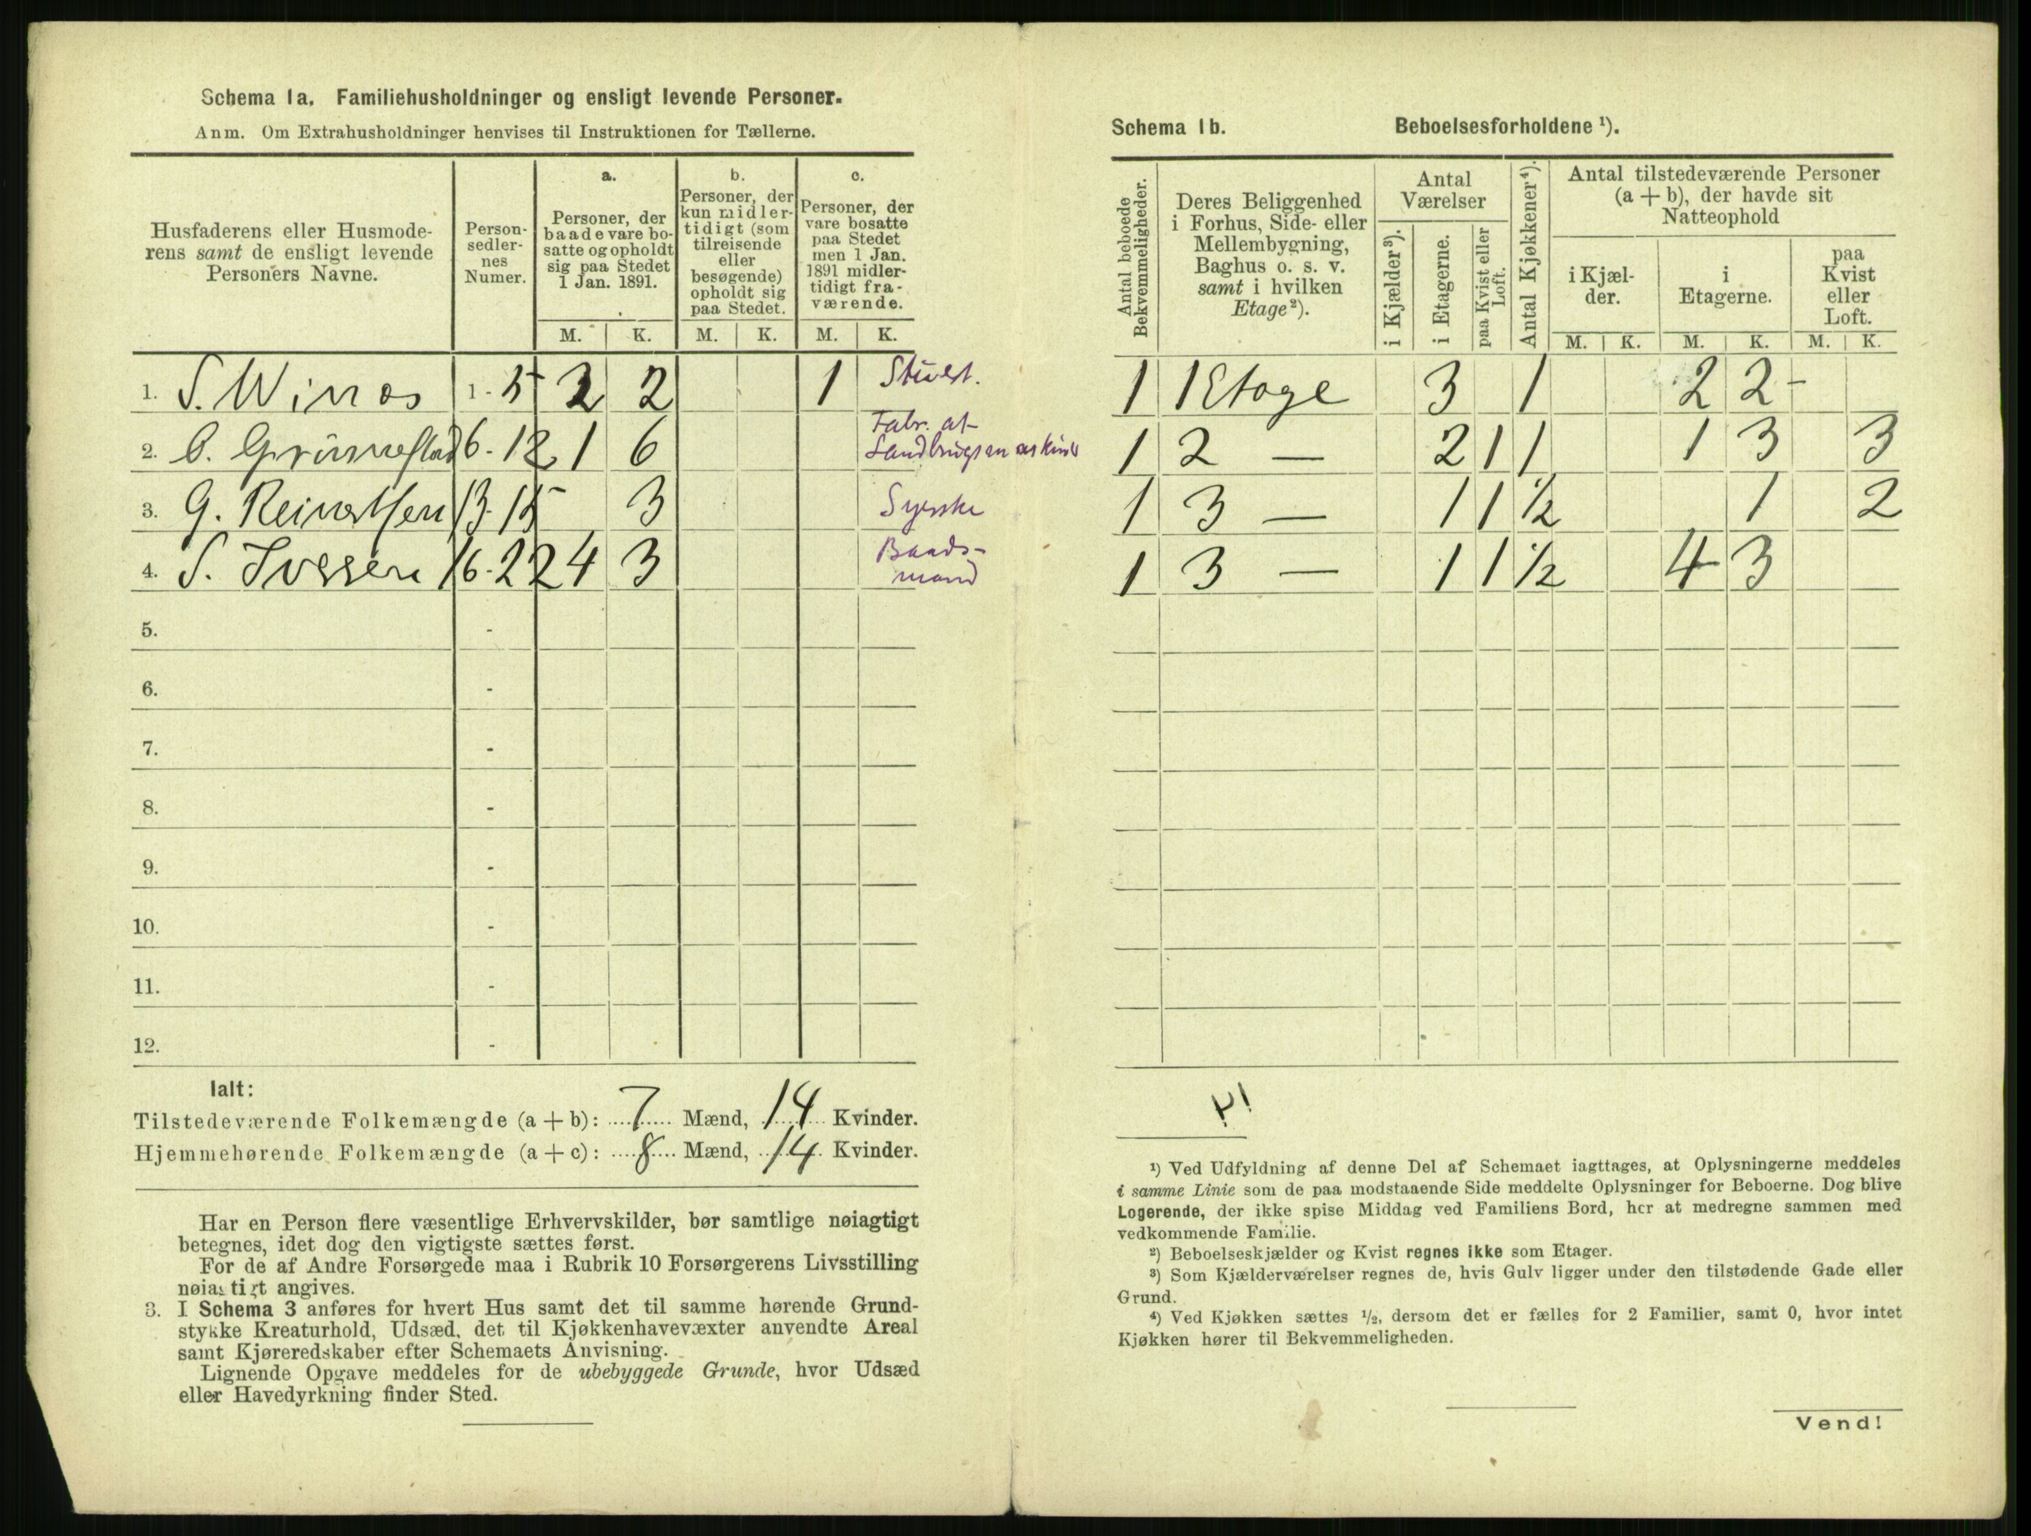 Schema 1a. Familiehusholdninger og ensligt levende Personer.
Anm. Om Extrahusholdninger henvises til Instruktionen for Tællerne.
Husfaderens eller Husmoderens samt de ensligt levende Personers Navne.
Person-sedler-nes Numer.
a. Personer, der baade vare bosatte og opholdt sig paa Stedet 1 Jan. 1891.
b. Personer, der kun midlertidigt (som tilreisende eller besøgende) opholdt sig paa Stedet.
c. Personer, der vare bosatte paa Stedet men 1 Jan. 1891 midlertidigt fraværende.
M. K. M. K. M. K.
1. S. Winæs 1-5 2 2 1 Stuert.
2. O. Grimestad 6-12 1 6 Fabr. af Landbrugsmaskiner
3. G. Reinertsen 13-15 3 Syerske
4. S. Iversen 16-22 4 3 Baadsmand
5. -
6. -
7. -
8. -
9. -
10. -
11. -
12. -
Ialt:
Tilstedeværende Folkemængde (a + b): 7 Mænd, 14 Kvinder.
Hjemmehørende Folkemængde (a + c): 8 Mænd, 14 Kvinder.
Har en Person flere væsentlige Erhvervskilder, bør samtlige nøiagtigt
betegnes, idet dog den vigtigste sættes først.
For de af Andre Forsørgede maa i Rubrik 10 Forsørgerens Livsstilling
nøiagtigt angives.
3. I Schema 3 anføres for hvert Hus samt det til samme hørende Grund-
stykke Kreaturhold, Udsæd, det til Kjøkkenhavevæxter anvendte Areal
samt Kjøreredskaber efter Schemaets Anvisning.
Lignende Opgave meddeles for de ubebyggede Grunde, hvor Udsæd
eller Havedyrkning finder Sted.
Schema 1b. Beboelsesforholdene ¹).
Antal beboede Bekvemmeligheder.
Deres Beliggenhed i Forhus, Side- eller Mellembygning, Baghus o. s. v. samt i hvilken Etage²).
Antal Værelser
i Kjælder³).
i Etagerne.
paa Kvist eller Loft.
Antal Kjøkkener⁴).
Antal tilstedeværende Personer (a + b), der havde sit Natteophold
i Kjælder.
i Etagerne.
paa Kvist eller Loft.
M. K. M. K. M. K.
1 1 Etage 3 1 2 2 -
1 2 — 2 1 1 1 3 3
1 3 — 1 1 ½ 1 2
1 3 — 1 1 ½ 4 3
21
¹) Ved Udfyldning af denne Del af Schemaet iagttages, at Oplysningerne meddeles
i samme Linie som de paa modstaaende Side meddelte Oplysninger for Beboerne. Dog blive
Logerende, der ikke spise Middag ved Familiens Bord, her at medregne sammen med
vedkommende Familie.
²) Beboelseskjælder og Kvist regnes ikke som Etager.
³) Som Kjælderværelser regnes de, hvis Gulv ligger under den tilstødende Gade eller
Grund.
⁴) Ved Kjøkken sættes ½, dersom det er fælles for 2 Familier, samt 0, hvor intet
Kjøkken hører til Bekvemmeligheden.
Vend!